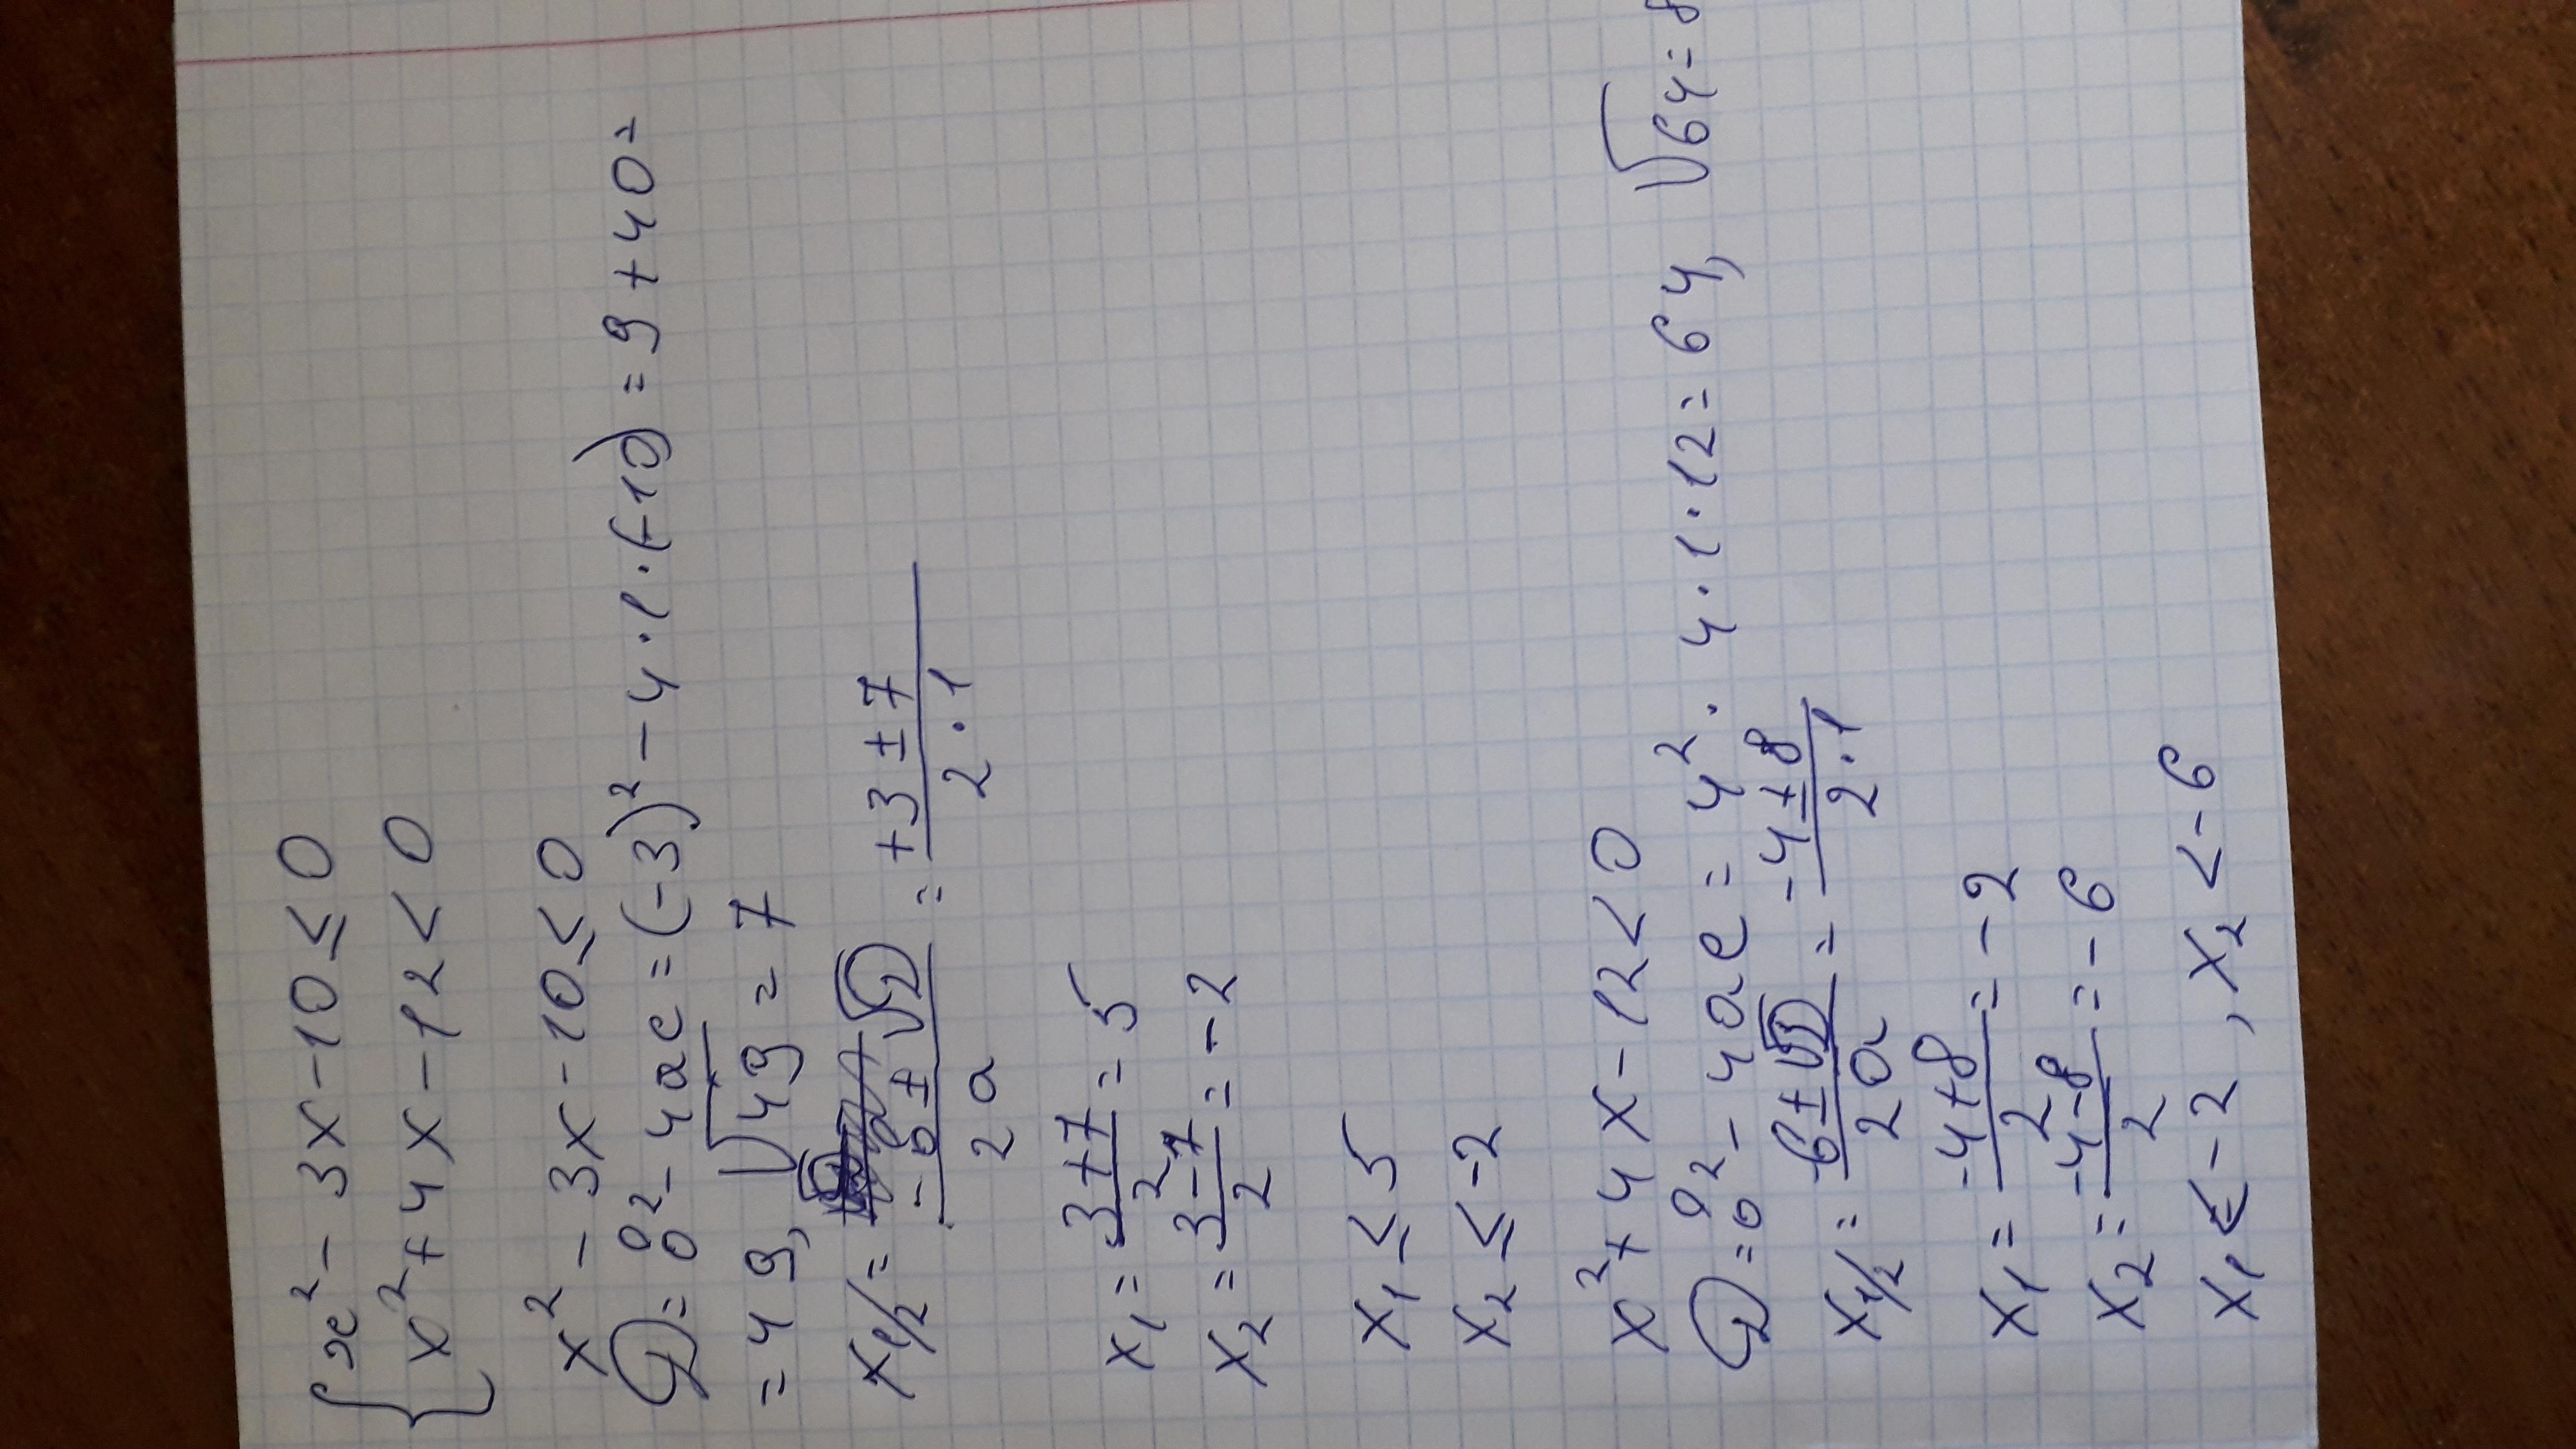 { x² - 3x - 10 ≤ 0
x² + 4x - 12 < 0
x² - 3x - 10 ≤ 0
D = b² - 4ac = (-3)² - 4·1·(-10) = 9 + 40 =
= 49, √49 = 7
x1/2 = (-b ± √D)/(2a) = (+3 ± 7)/(2·1)
x₁ = (3+7)/2 = 5
x₂ = (3-7)/2 = -2
x₁ ≤ 5
x₂ ≤ -2
x² + 4x - 12 < 0
D = b² - 4ac = 4² · 4·1·12 = 64, √64 = 8
x1/2 = (-b ± √D)/(2a) = (-4 ± 8)/(2·1)
x₁ = (-4+8)/2 = -2
x₂ = (-4-8)/2 = -6
x₁ < -2, x₂ < -6